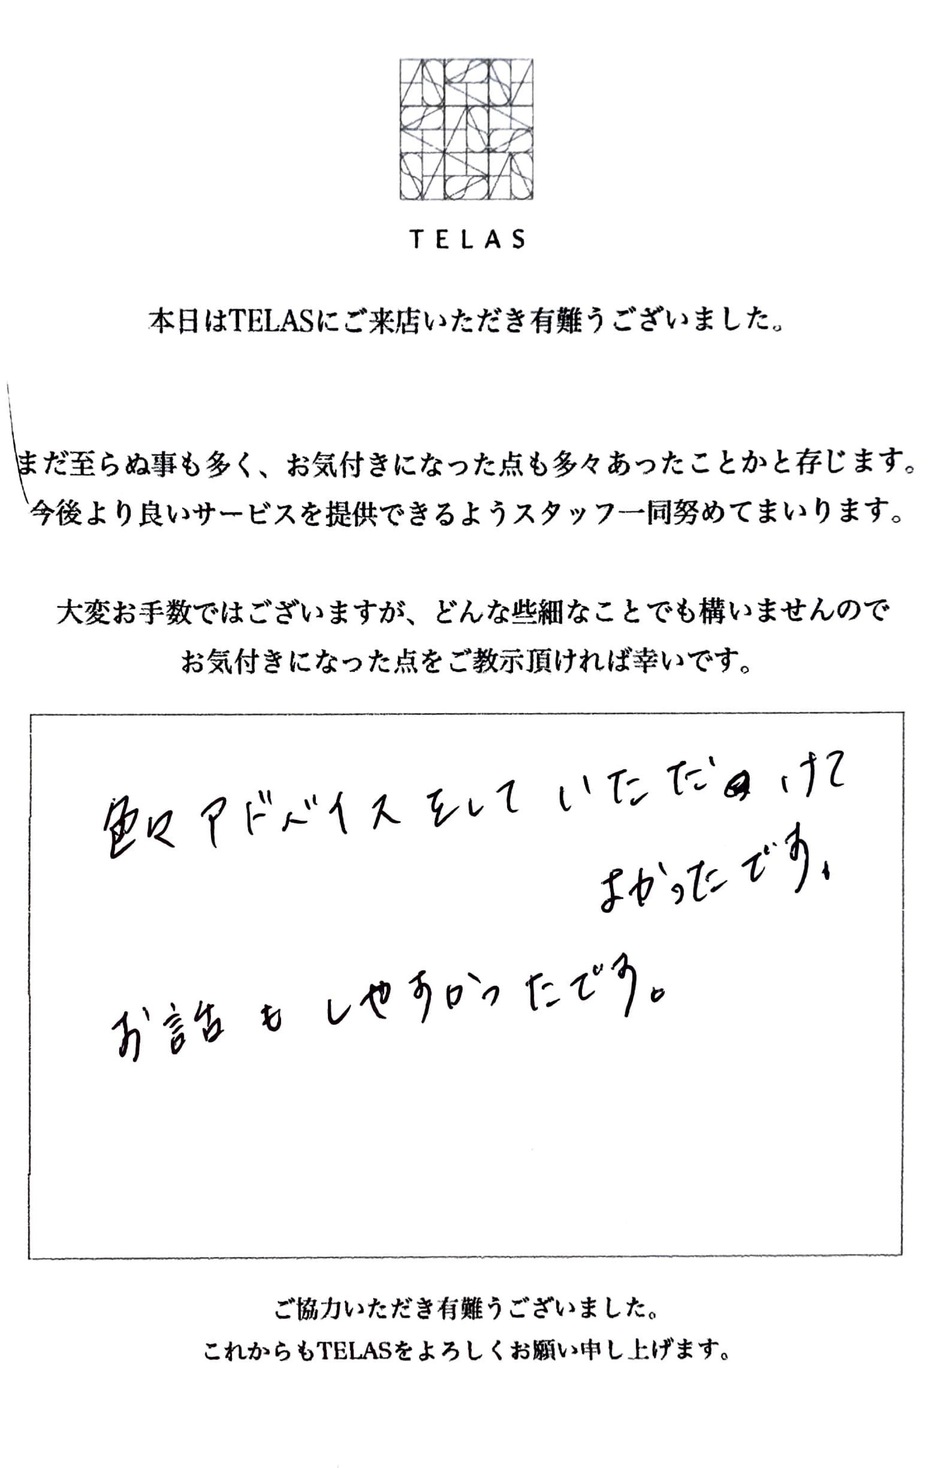 TELAS
本日はTELASにご来店いただき有難うございました。
まだ至らぬ事も多く、お気付きになった点も多々あったことかと存じます。
今後より良いサービスを提供できるようスタッフ一同努めてまいります。
大変お手数ではございますが、どんな些細なことでも構いませんので
お気付きになった点をご教示頂ければ幸いです。
色々アドバイスをしていただけて
よかったです。
お話もしやすかったです。
ご協力いただき有難うございました。
これからもTELASをよろしくお願い申し上げます。